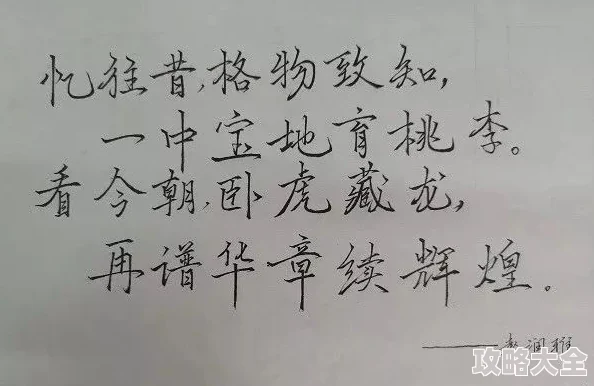 忆往昔,格物致知,
一中宝地育桃李。
看今朝,卧虎藏龙,
再谱华章续辉煌。
——赵润雅
攻略大全